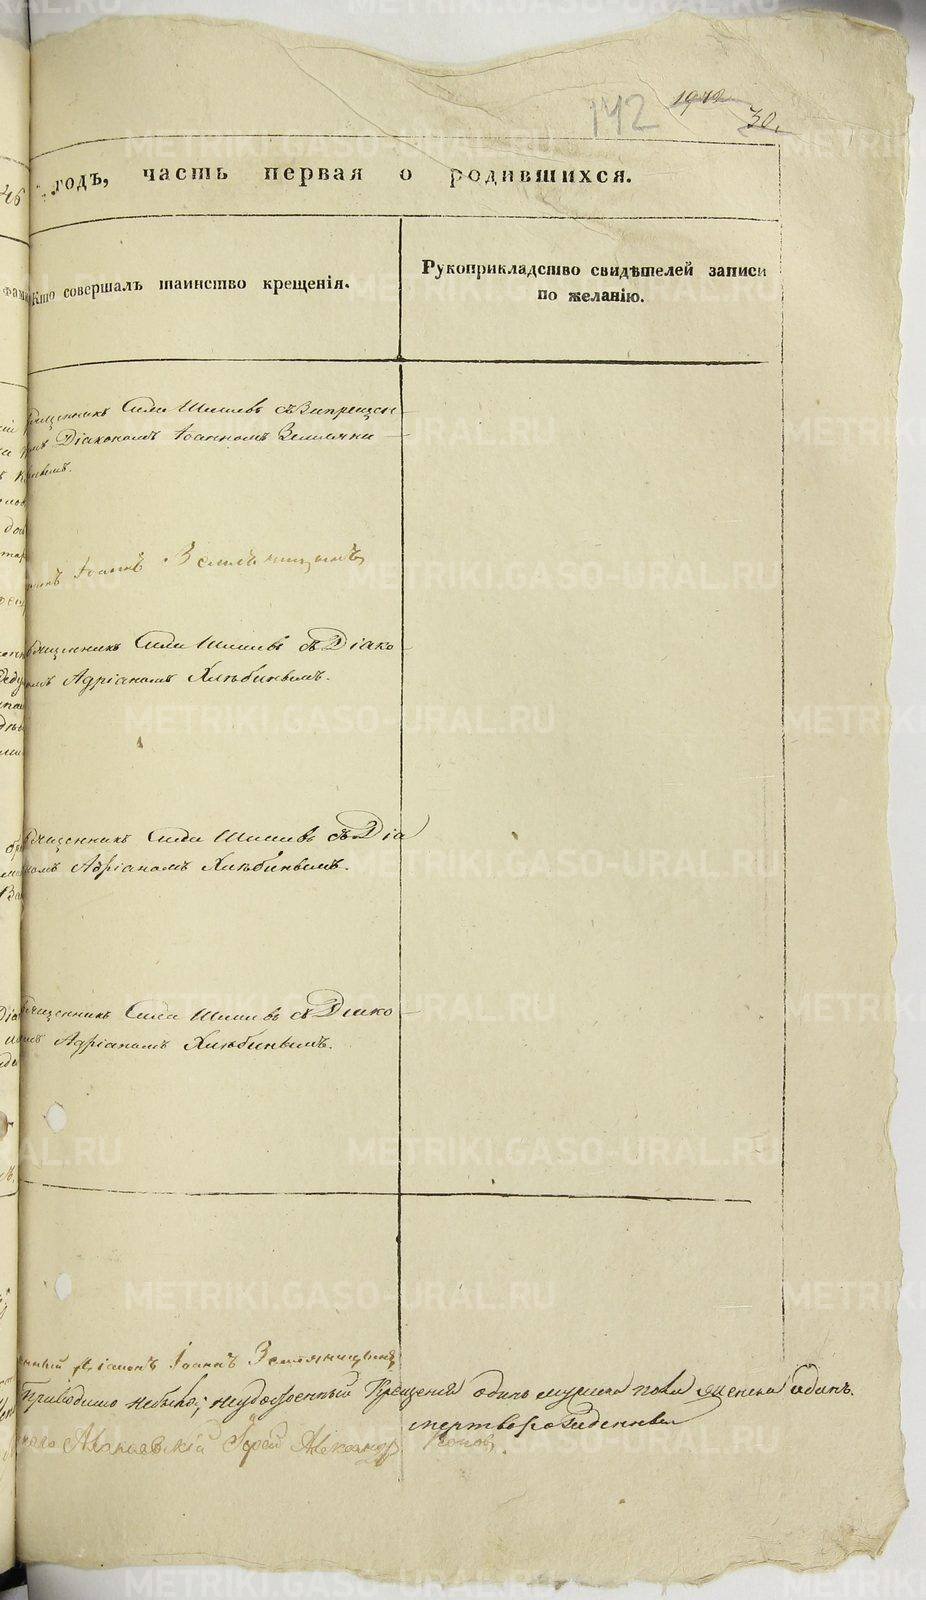 142 1942
30.
годъ, часть первая о родившихся.
Кто совершалъ таинство крещенія.
Рукоприкладство свидѣтелей записи
по желанію.
Священникъ Сила Шишевъ съ
Діакономъ Іоанномъ
Іоаннъ Земляницынъ
Священникъ Сила Шишевъ съ Діако
номъ Адріаномъ Хлѣбинымъ.
Священникъ Сила Шишевъ съ Діа
номъ Адріаномъ Хлѣбинымъ.
Священникъ Сила Шишевъ съ Діако
номъ Адріаномъ Хлѣбинымъ.
Діаконъ Іоаннъ Земляницынъ
небыло; неудостоенный Крещенія одинъ мужеска пола женска одинъ.
мертворожденные
Іерей Александр Попов
METRIKI.GASO-URAL.RU